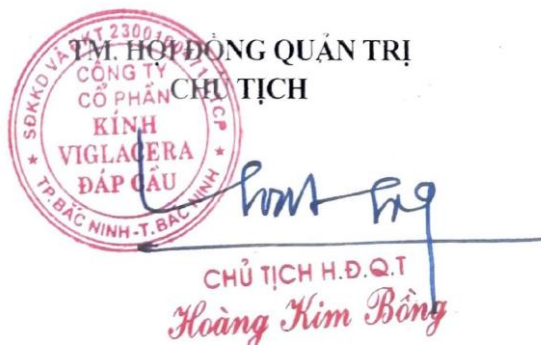 TM. HỘI ĐỒNG QUẢN TRỊ
CHỦ TỊCH
SĐKKD VÀ
CÔNG TY
CỔ PHẦN
KÍNH
VIGLACERA
ĐÁP CẦU
TP.BẮC NINH-T.BẮC NINH
CHỦ TỊCH H.Đ.Q.T
Hoàng Kim Bồng